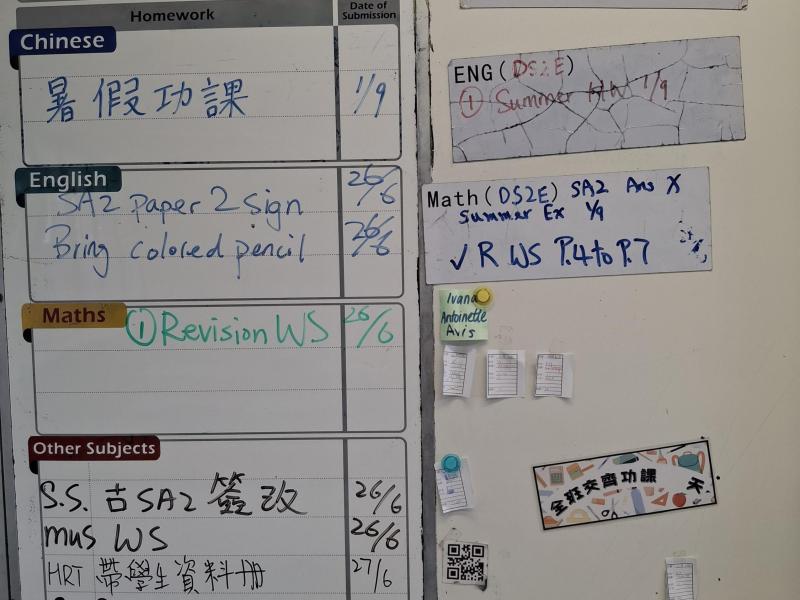 Homework
Date of Submission
Chinese
暑假功課 1/9
English
SA2 paper 2 sign 26/6
Bring colored pencil 26/6
Maths
① Revision WS 26/6
Other Subjects
S.S. 古 SA2 簽改 26/6
mus WS 26/6
HRT 帶學生資料冊 27/6
ENG (DS2E)
① Summer HW 1/9
Math (DS2E) SA2 Ans X
Summer Ex 1/9
✓ R WS P.4 to P.7
Ivana
Antoinette
Avis
全班交齊功課 天